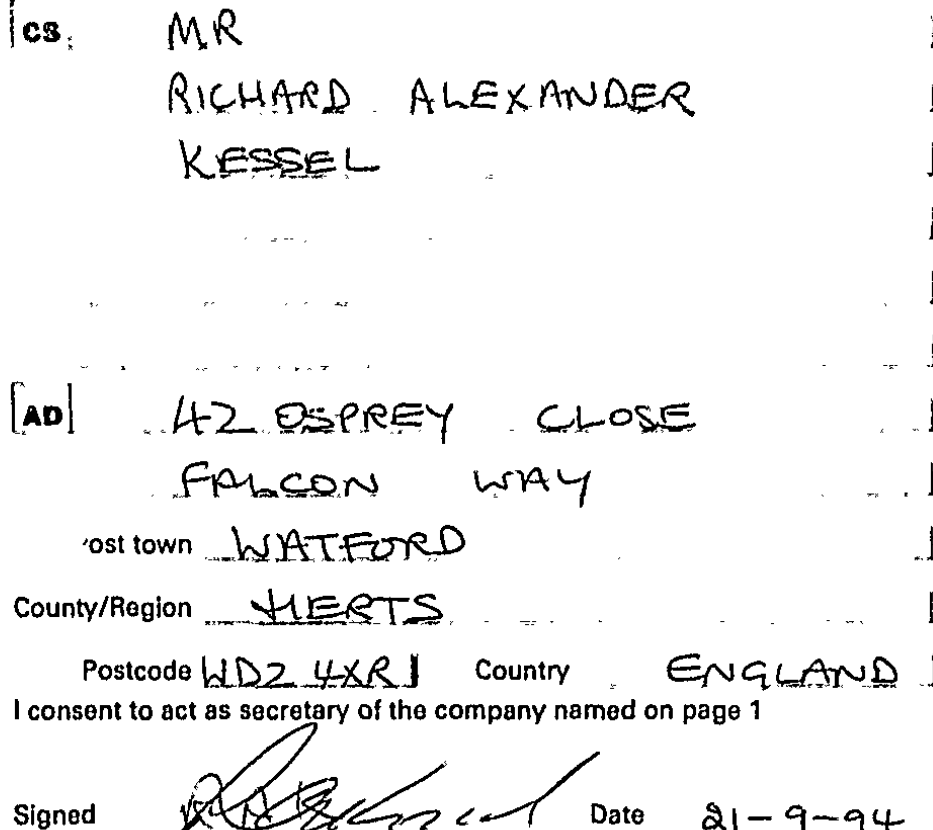 CS MR
RICHARD ALEXANDER
KESSEL
AD 42 OSPREY CLOSE
FALCON WAY
ost town WATFORD
County/Region HERTS
Postcode WD2 4XR Country ENGLAND
I consent to act as secretary of the company named on page 1
Signed Date 21-9-94